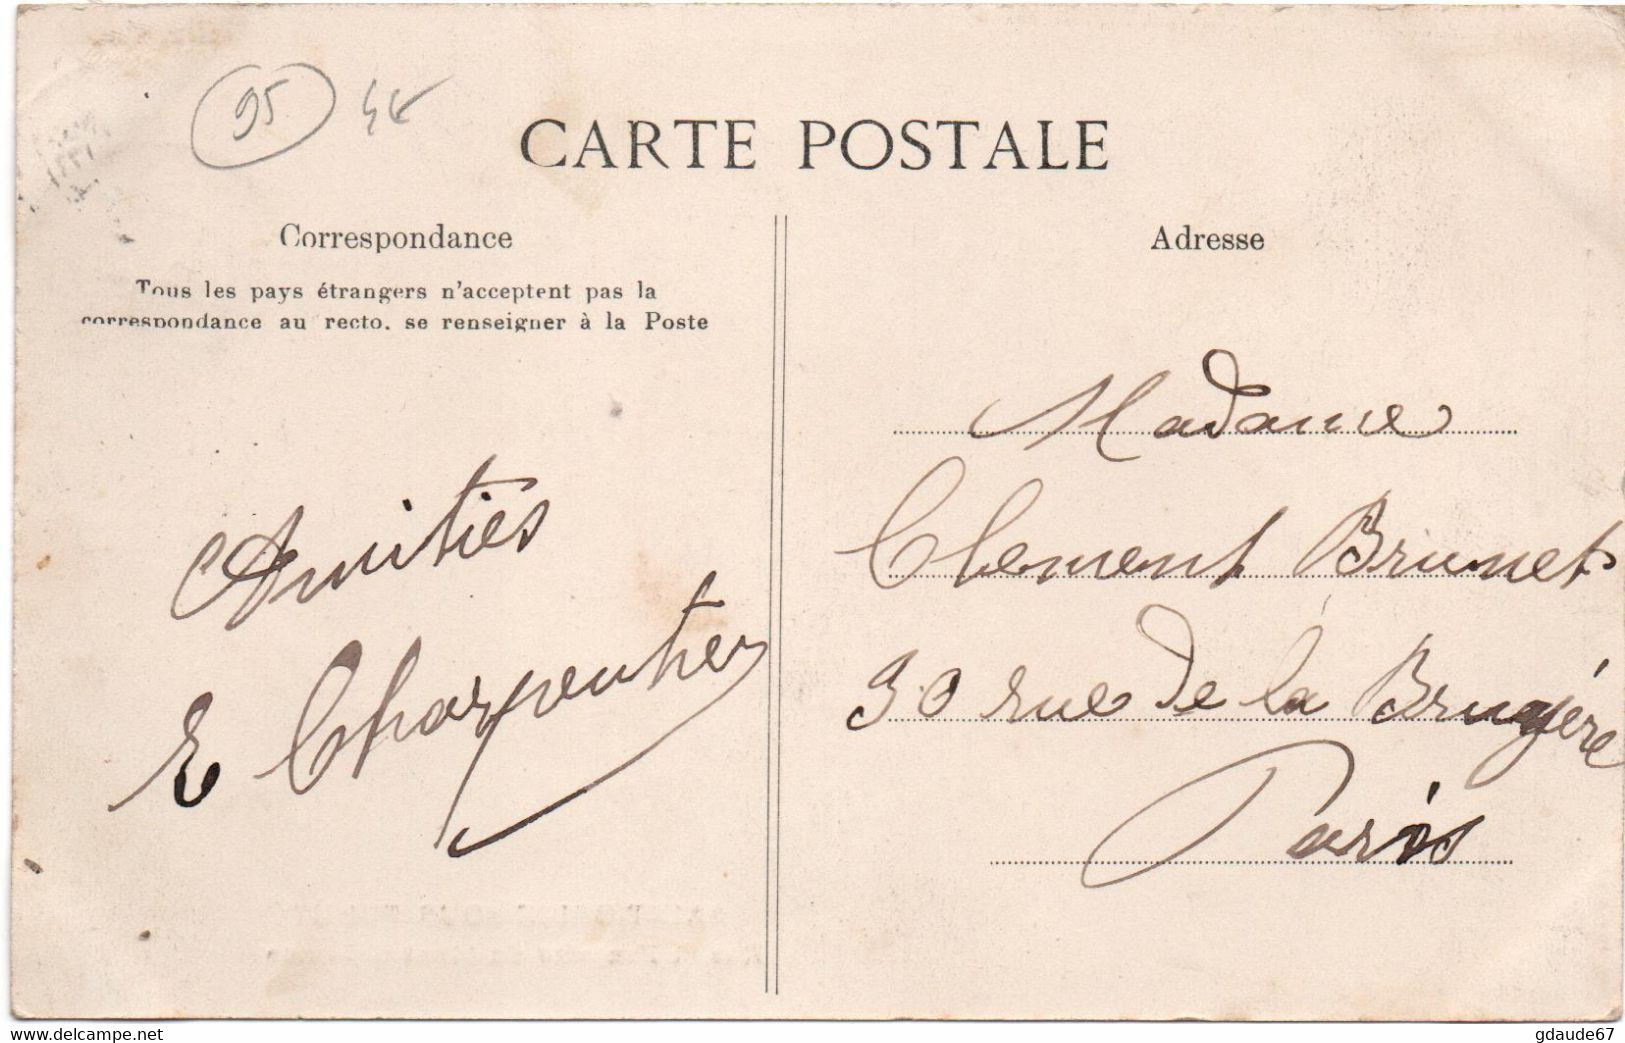 95 4€
CARTE POSTALE
Correspondance
Tous les pays étrangers n'acceptent pas la
correspondance au recto, se renseigner à la Poste
Amitiés
E Charpentier
Adresse
Madame
Clement Brunet
30 rue de la Brugère
Paris
www.delcampe.net
gdaude67